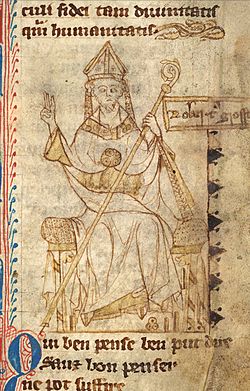 culi fidei tam diuinitatis
qui humanitatis.
Robert' Gross
Qui ben pense ben put dire
Sanz bon penser
ne pot suffire